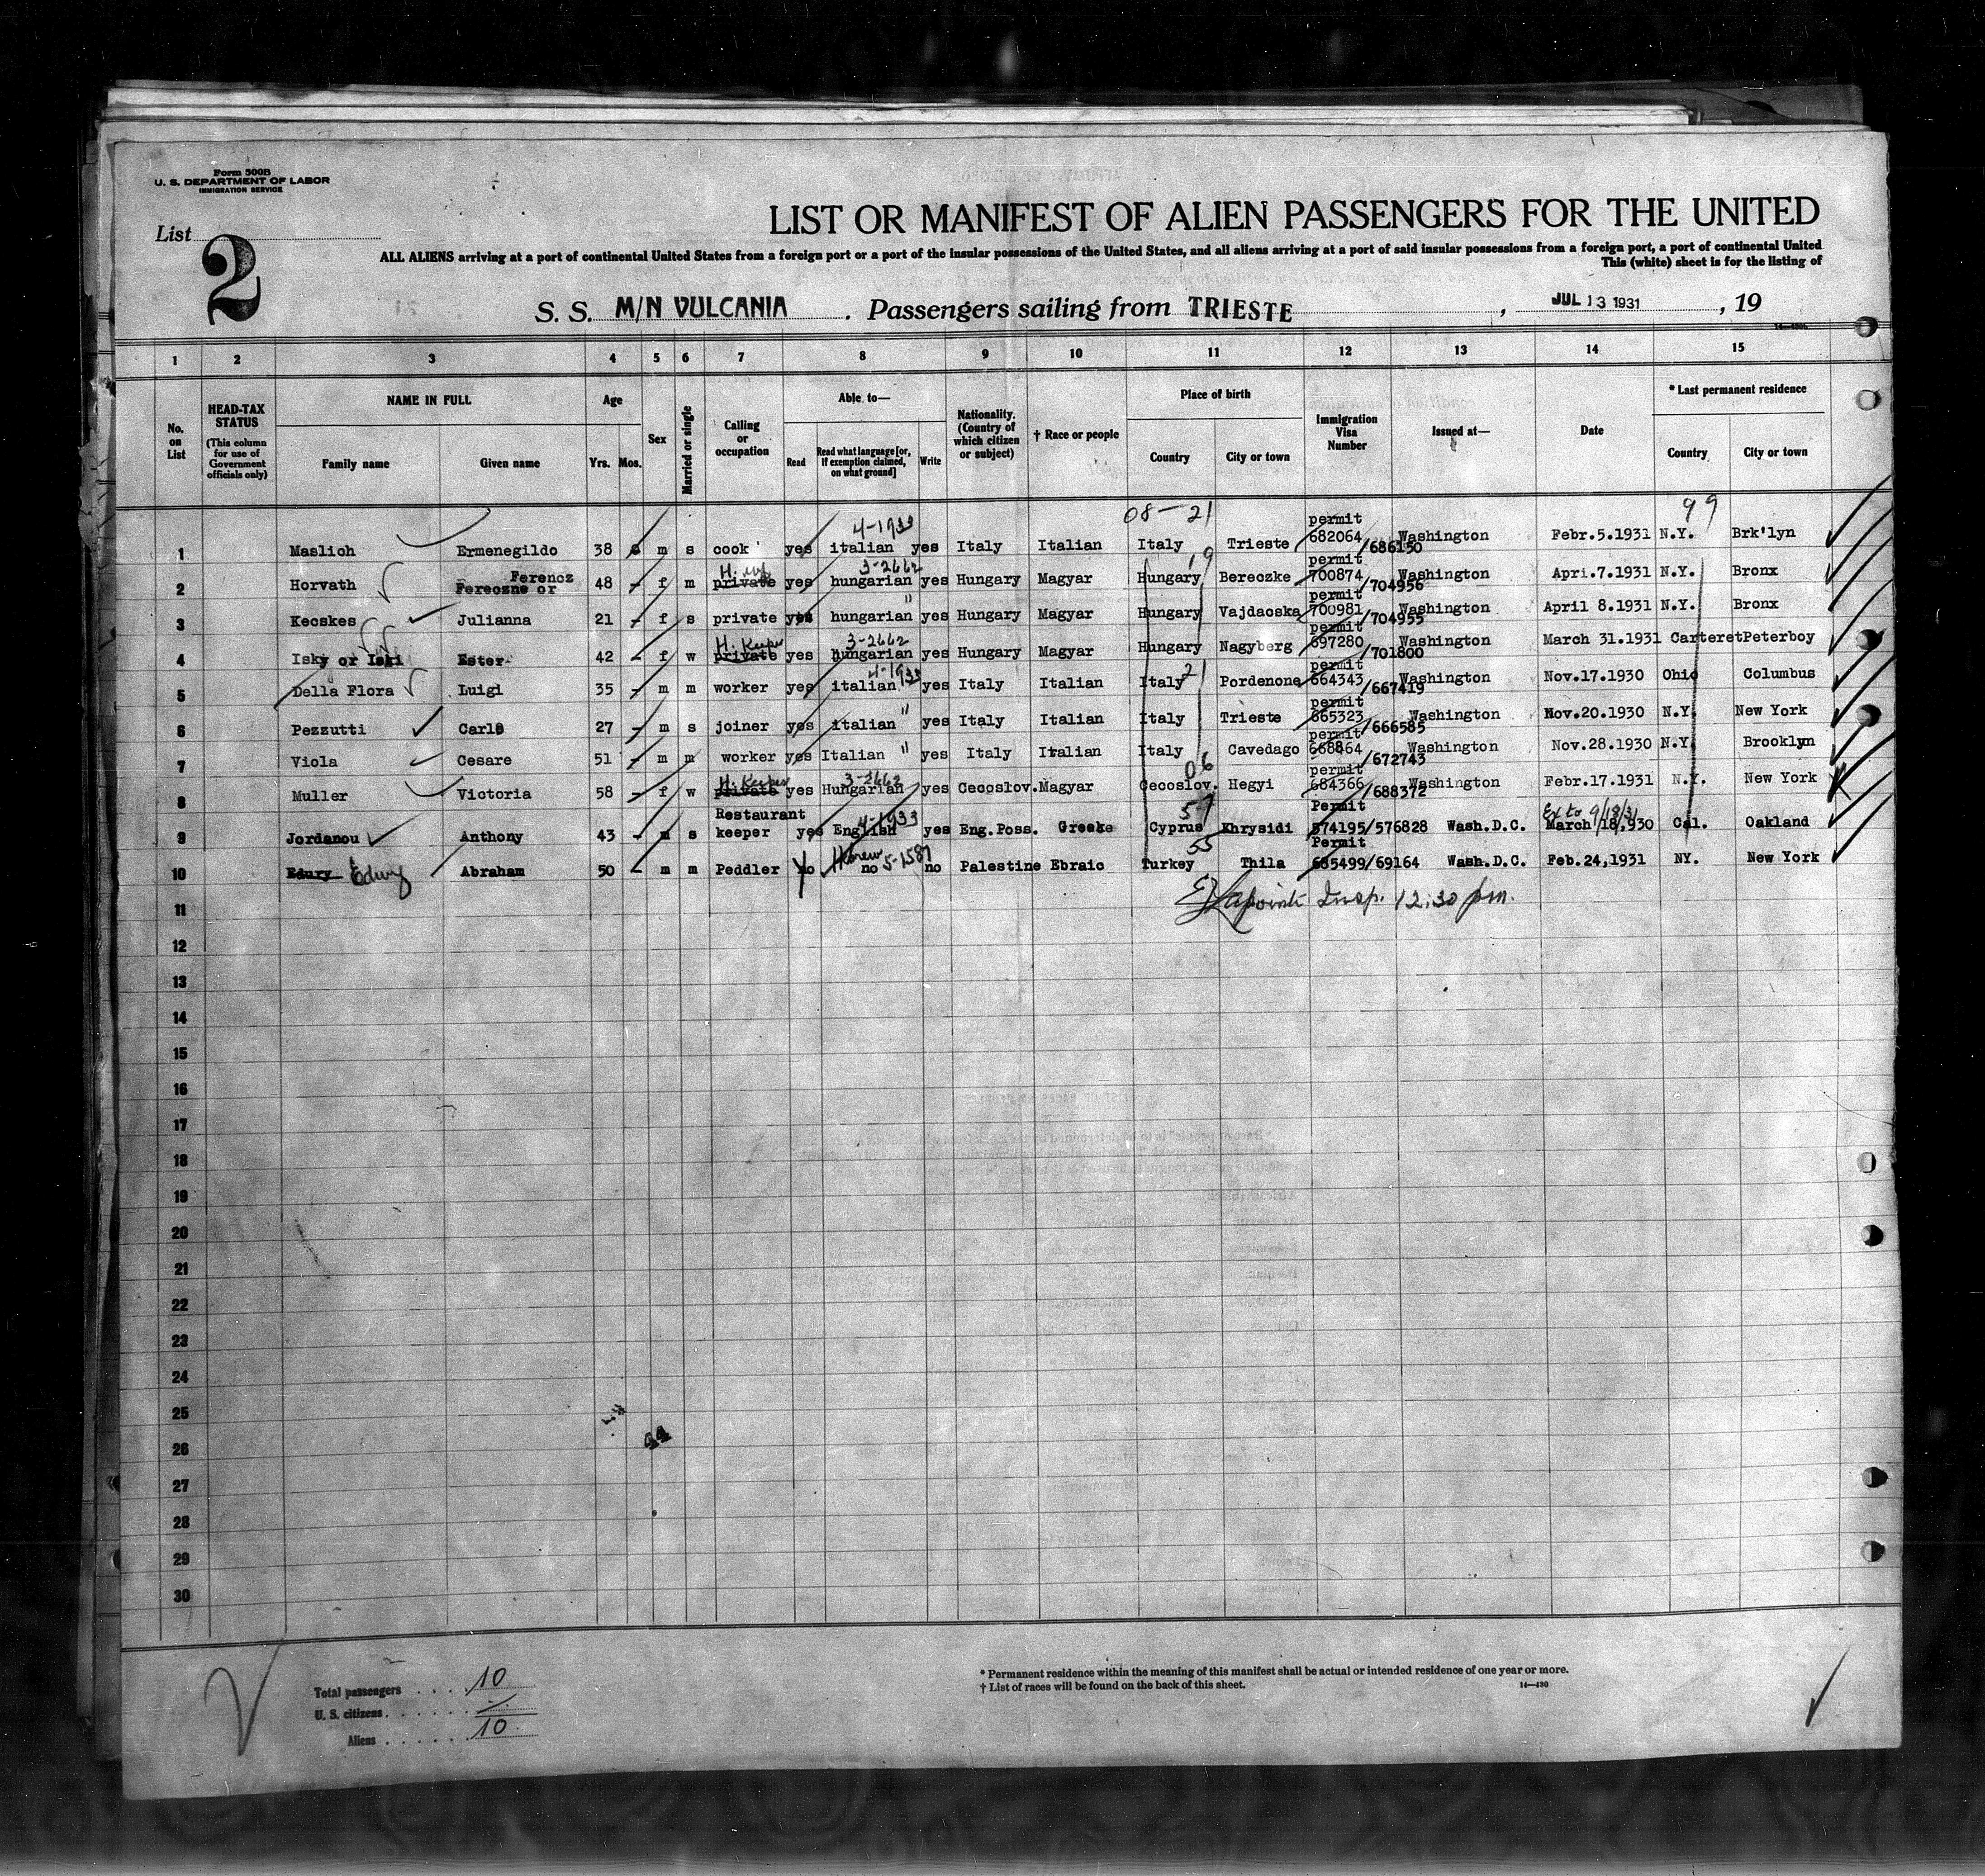 Form 500B
U. S. DEPARTMENT OF LABOR
IMMIGRATION SERVICE
List
2
LIST OR MANIFEST OF ALIEN PASSENGERS FOR THE UNITED
ALL ALIENS arriving at a port of continental United States from a foreign port or a port of the insular possessions of the United States, and all aliens arriving at a port of said insular possessions from a foreign port, a port of continental United
This (white) sheet is for the listing of
S. S. M/N VULCANIA . Passengers sailing from TRIESTE , JUL 13 1931 , 19
1 2 3 4 5 6 7 8 9 10 11 12 13 14 15
No. on List
HEAD-TAX STATUS (This column for use of Government officials only)
NAME IN FULL
Family name Given name
Age
Yrs. Mos.
Sex
Married or single
Calling or occupation
Able to—
Read Read what language [or, if exemption claimed, on what ground] Write
Nationality. (Country of which citizen or subject)
† Race or people
Place of birth
Country City or town
Immigration Visa Number
Issued at—
Date
* Last permanent residence
Country City or town
4-1933 08-21 permit 99
1 Maslich Ermenegildo 38 m s cook yes italian yes Italy Italian Italy Trieste 682064/686150 Washington Febr.5.1931 N.Y. Brk'lyn
Ferencz 3-2662 19 permit
2 Horvath Fereczne or 48 - f m private yes hungarian yes Hungary Magyar Hungary Bereczke 700874/704956 Washington Apri.7.1931 N.Y. Bronx
" permit
3 Kecskes Julianna 21 - f s private yes hungarian yes Hungary Magyar Hungary Vajdacska 700981/704955 Washington April 8.1931 N.Y. Bronx
H. Keeper 3-2662 permit
4 Isky or Iski Ester 42 - f w private yes hungarian yes Hungary Magyar Hungary Nagyberg 697280/701800 Washington March 31.1931 Carteret Peterboy
4-1933 21 permit
5 Della Flora Luigi 35 - m m worker yes italian yes Italy Italian Italy Pordenone 664343/667419 Washington Nov.17.1930 Ohio Columbus
" permit
6 Pezzutti Carlo 27 - m s joiner yes italian yes Italy Italian Italy Trieste 665323/666585 Washington Nov.20.1930 N.Y. New York
permit
7 Viola Cesare 51 - m m worker yes Italian " yes Italy Italian Italy Cavedago 668864/672743 Washington Nov.28.1930 N.Y. Brooklyn
H. Keeper 3-2662 06 permit
8 Muller Victoria 58 - f w private yes Hungarian yes Cecoslov. Magyar Cecoslov. Hegyi 684366/688372 Washington Febr.17.1931 N.Y. New York
Restaurant 4-1933 57 Permit Ex to 9/18/31
9 Jordanou Anthony 43 - m s keeper yes English yes Eng.Poss. Greeke Cyprus Khrysidi 574195/576828 Wash.D.C. March 18,930 Cal. Oakland
Hbrew 5-1587 55 Permit
10 Edury Edwy Abraham 50 - m m Peddler no no no Palestine Ebraio Turkey Thila 685499/69164 Wash.D.C. Feb.24,1931 NY. New York
11 Lapointe Insp. 12:30 pm.
12
13
14
15
16
17
18
19
20
21
22
23
24
25
26
27
28
29
30
Total passengers . . . . 10
U. S. citizens . . . . . .
Aliens . . . . . . 10
* Permanent residence within the meaning of this manifest shall be actual or intended residence of one year or more.
† List of races will be found on the back of this sheet. 14—430